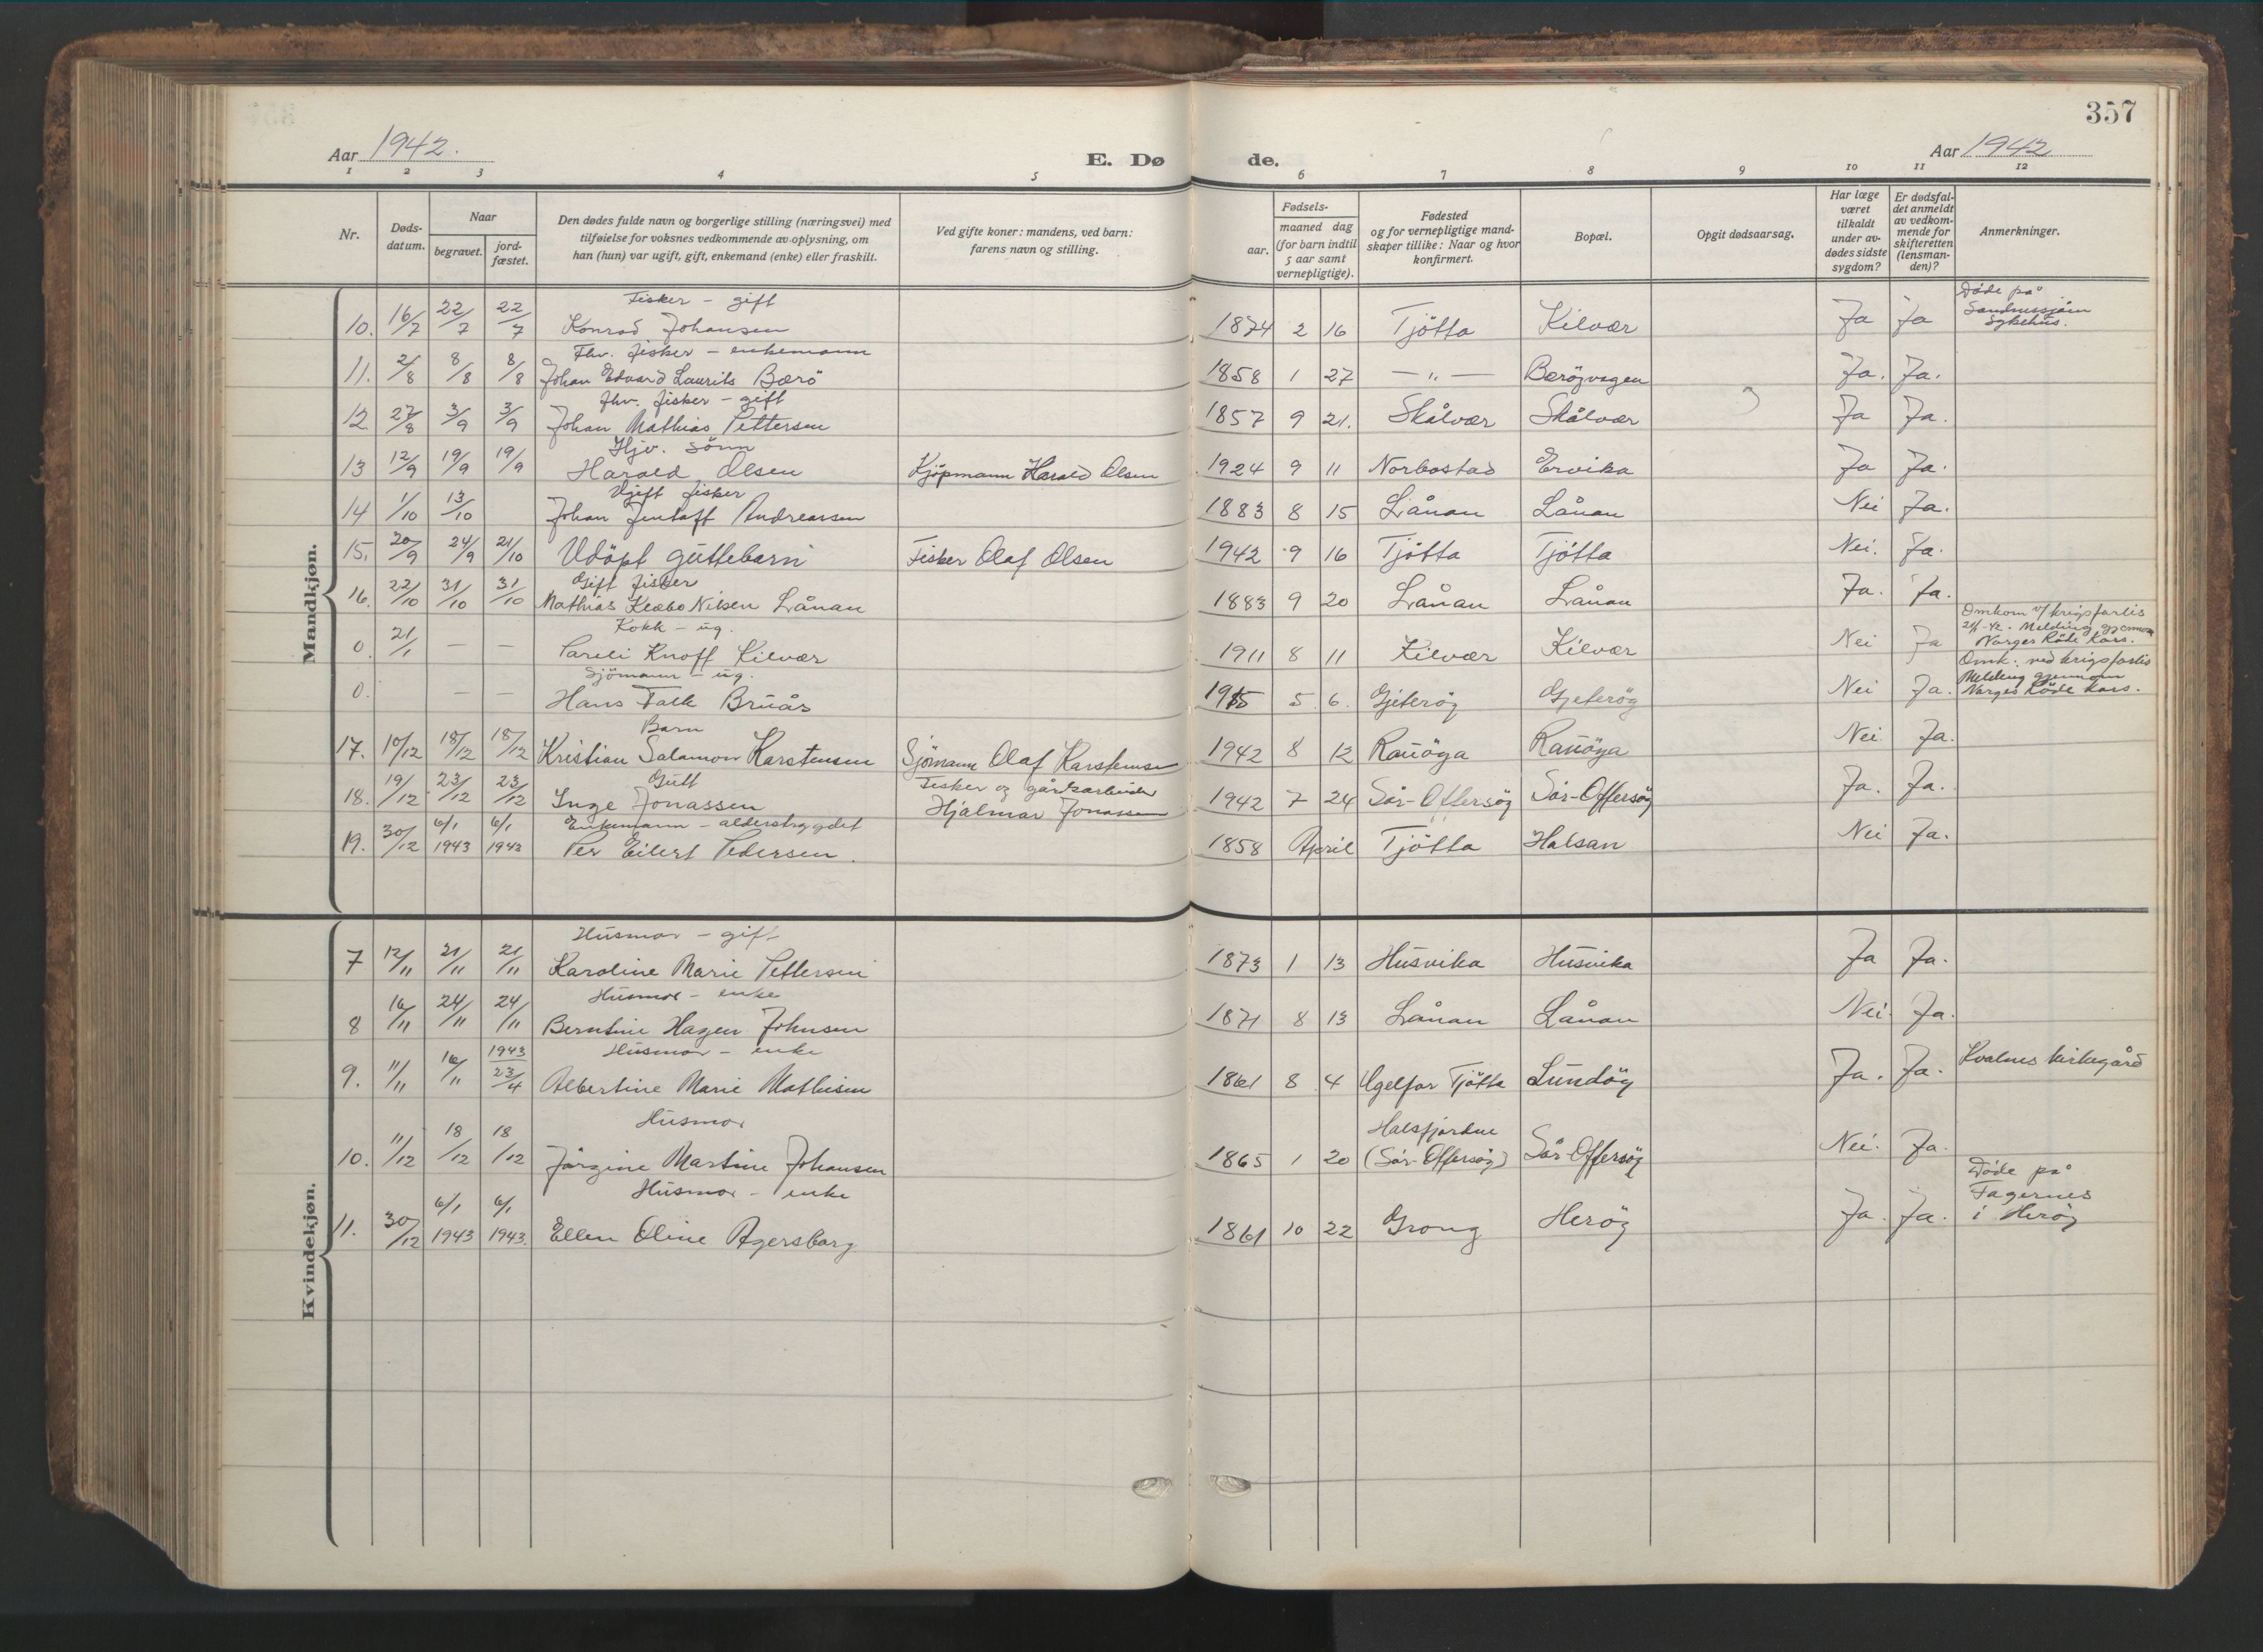 357
Aar 1942.
E. Dø
de.
Aar 1942
1 2 3 4 5 6 7 8 9 10 11 12
Nr.
Døds-
datum.
Naar
begravet.
jord-
fæstet.
Den dødes fulde navn og borgerlige stilling (næringsvei) med
tilføielse for voksnes vedkommende av oplysning, om
han (hun) var ugift, gift, enkemand (enke) eller fraskilt.
Ved gifte koner: mandens, ved barn:
farens navn og stilling.
Fødsels-
aar.
maaned dag
(for barn indtil
5 aar samt
vernepligtige).
Fødested
og for vernepligtige mand-
skaper tillike: Naar og hvor
konfirmert.
Bopæl.
Opgit dødsaarsag.
Har læge
været
tilkaldt
under av-
dødes sidste
sygdom?
Er dødsfal-
det anmeldt
av vedkom-
mende for
skifteretten
(lensman-
den)?
Anmerkninger.
Mandkjøn.
Fisker - gift
10. 16/7 22/7 22/7 Konrad Johansen 1874 2 16 Tjötta Kilvær Ja Ja
Döde på
Sandnessjöen
Sykehus.
Fhv. fisker - enkemann
11. 2/8 8/8 8/8 Johan Edvard Laurits Bærö 1858 1 27 — " — Beröyvagen Ja. Ja.
fhv. fisker - gift
12 27/8 3/9 3/9 Johan Mathias Pettersen 1857 9 21. Skålvær Skålvær Ja Ja.
Hjv. sönn
13 12/9 19/9 19/9 Harald Olsen Kjöpmann Harald Olsen 1924 9 11 Norbostad Ervika Ja Ja.
Ugift fisker
14 1/10 13/10 Johan Jentoft Andreassen 1883 8 15 Lånan Lånan Nei Ja.
15. 20/9 24/9 21/10 Udöpt guttebarn Fisker Olaf Olsen 1942 9 16 Tjötta Tjötta Nei. Ja.
Gift fisker
16. 22/10 31/10 31/10 Mathias Klæbo Nilsen Lånan 1883 9 20 Lånan Lånan Ja. Ja.
Kokk - ug.
0. 21/1 — — Pareli Knoff Kilvær 1911 8 11 Kilvær Kilvær Nei Ja
Omkom v/ krigsforlis
21/1-42. Melding gjennom
Norges Röde Kors.
Sjömann - ug.
0. — — Hans Falk Bruås 1915 5 6. Gjeteröy Gjeteröy Nei Ja.
Omk. ved krigsforlis
Melding gjennom
Norges Röde Kors.
Barn
17. 10/12 18/12 18/12 Kristian Salamon Karstensen Sjömann Olaf Karstensen 1942 8 12 Rauöya Rauöya Nei. Ja.
Gutt
18. 19/12 23/12 23/12 Inge Jonassen Fisker og gårdsarbeider
Hjalmar Jonassen 1942 7 24 Sör-Offersöy Sör-Offersöy Ja. Ja.
Enkemann - alderstrygdet
19. 30/12 6/1 1943 6/1 1943 Per Eilert Pedersen. 1858 April Tjötta Halsan Nei Ja.
Kvindekjøn.
Husmor - gift
7 12/11 21/11 21/11 Karoline Marie Pettersen 1873 1 13 Husvika Husvika Ja Ja.
Husmor - enke
8 16/11 24/11 24/11 Berntine Hagen Johnsen 1871 8 13 Lånan Lånan Nei. Ja.
Husmor - enke
9. 11/11 16/11 1943 23/4 Albertine Marie Mathisen 1861 8 4 Igelfor Tjötta Lundöy Ja. Ja. Kvalnes kirkegård
Husmor
10. 11/12 18/12 18/12 Jörgine Martine Johansen 1865 1 20 Halsfjorden
(Sör-Offersöy) Sör Offersöy Nei. Ja.
Husmor - enke
11. 30/12 6/1 1943 6/1 1943. Ellen Oline Agersborg 1861 10 22 Grong Heröy Ja. Ja.
Döde på
Fagernes
i Heröy